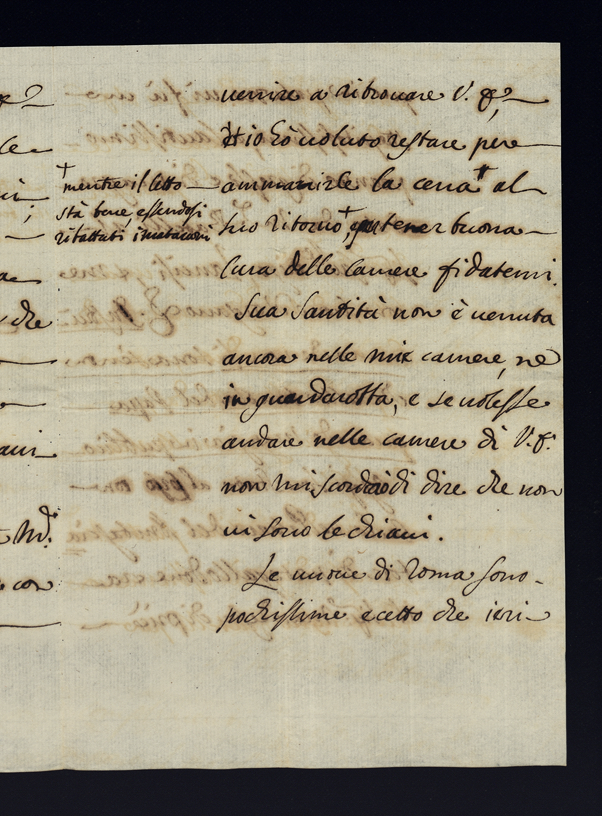 venire a ritrovare V. E.
io hò voluto restare per
† mentre il letto
stà bene, essendosi
rifattati i matarazzi
ammanirle la cena al
suo ritorno †, per tener buona
cura delle camere fidatemi.
Sua Santità non è venuta
ancora nelle mie camere, ne
in guardarobba, e se volesse
andare nelle camere di V. E.
non mi scorderò di dire che non
vi sono le chiavi.
Le nuove di Roma sono
pochissime ecetto che ieri
che